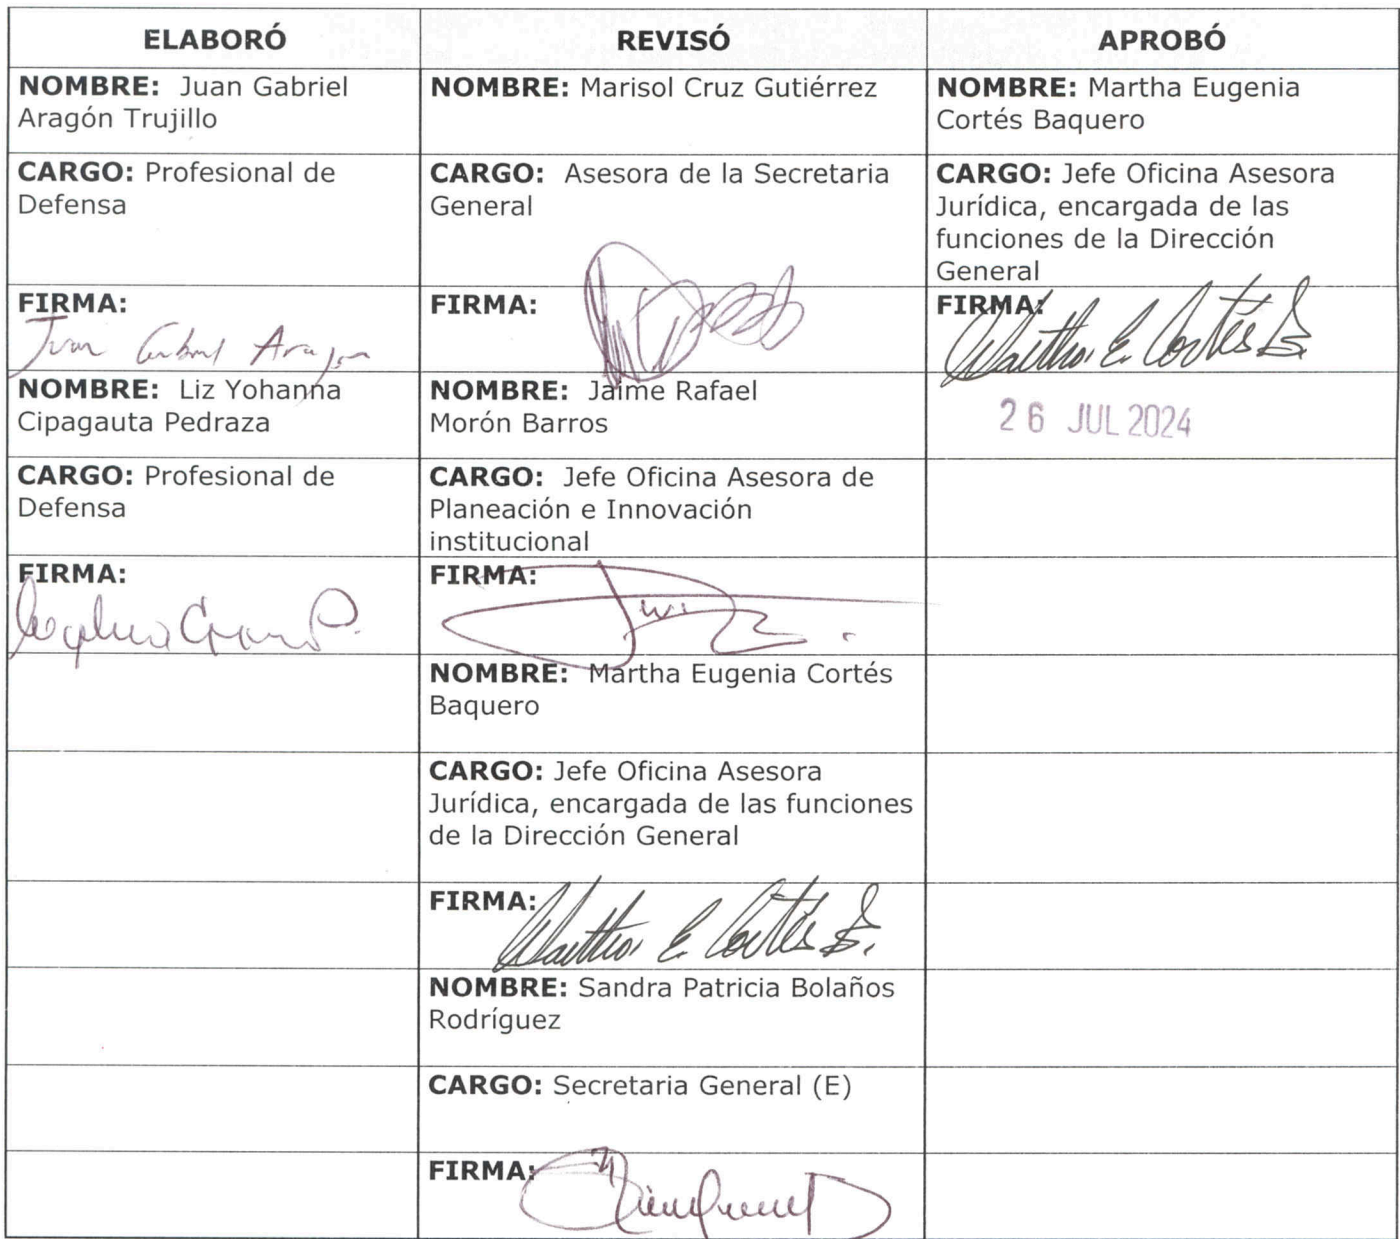 ELABORÓ
REVISÓ
APROBÓ
NOMBRE: Juan Gabriel
Aragón Trujillo
NOMBRE: Marisol Cruz Gutiérrez
NOMBRE: Martha Eugenia
Cortés Baquero
CARGO: Profesional de
Defensa
CARGO: Asesora de la Secretaria
General
CARGO: Jefe Oficina Asesora
Jurídica, encargada de las
funciones de la Dirección
General
FIRMA:
Juan Gabriel Aragon
FIRMA:
FIRMA:
Martha E. Cortés B.
NOMBRE: Liz Yohanna
Cipagauta Pedraza
NOMBRE: Jaime Rafael
Morón Barros
26 JUL 2024
CARGO: Profesional de
Defensa
CARGO: Jefe Oficina Asesora de
Planeación e Innovación
institucional
FIRMA:
FIRMA:
NOMBRE: Martha Eugenia Cortés
Baquero
CARGO: Jefe Oficina Asesora
Jurídica, encargada de las funciones
de la Dirección General
FIRMA:
Martha E. Cortés B.
NOMBRE: Sandra Patricia Bolaños
Rodríguez
CARGO: Secretaria General (E)
FIRMA: